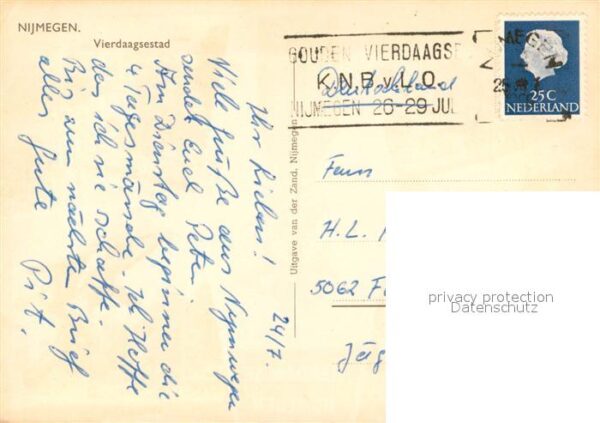 NIJMEGEN.
Vierdaagsestad
GOUDEN VIERDAAGSE
K.N.B.v.L.O.
NIJMEGEN 26-29 JUL
25 C
NEDERLAND
Deutschland
Uitgave van der Zand, Nijmegen
24/7.
Ihr Lieben!
Viele Grüße aus Nymwegen
sendet Euch Peter.
Am Dienstag beginnen die
4 Tagesmärsche. Ich Hoffe
das ich sie schaffe.
Bis zum nächsten Brief
alles Gute
Pit.
H.L.
5062 F
privacy protection
Datenschutz